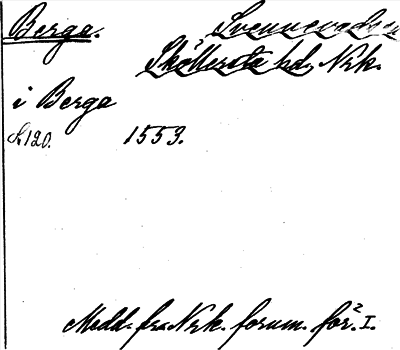 Berga. Svennevads sn
Sköllersta hd, Nrk.
i Berga
S. 120. 1553.
Medd. fr. Nrk. fornm. för. I.